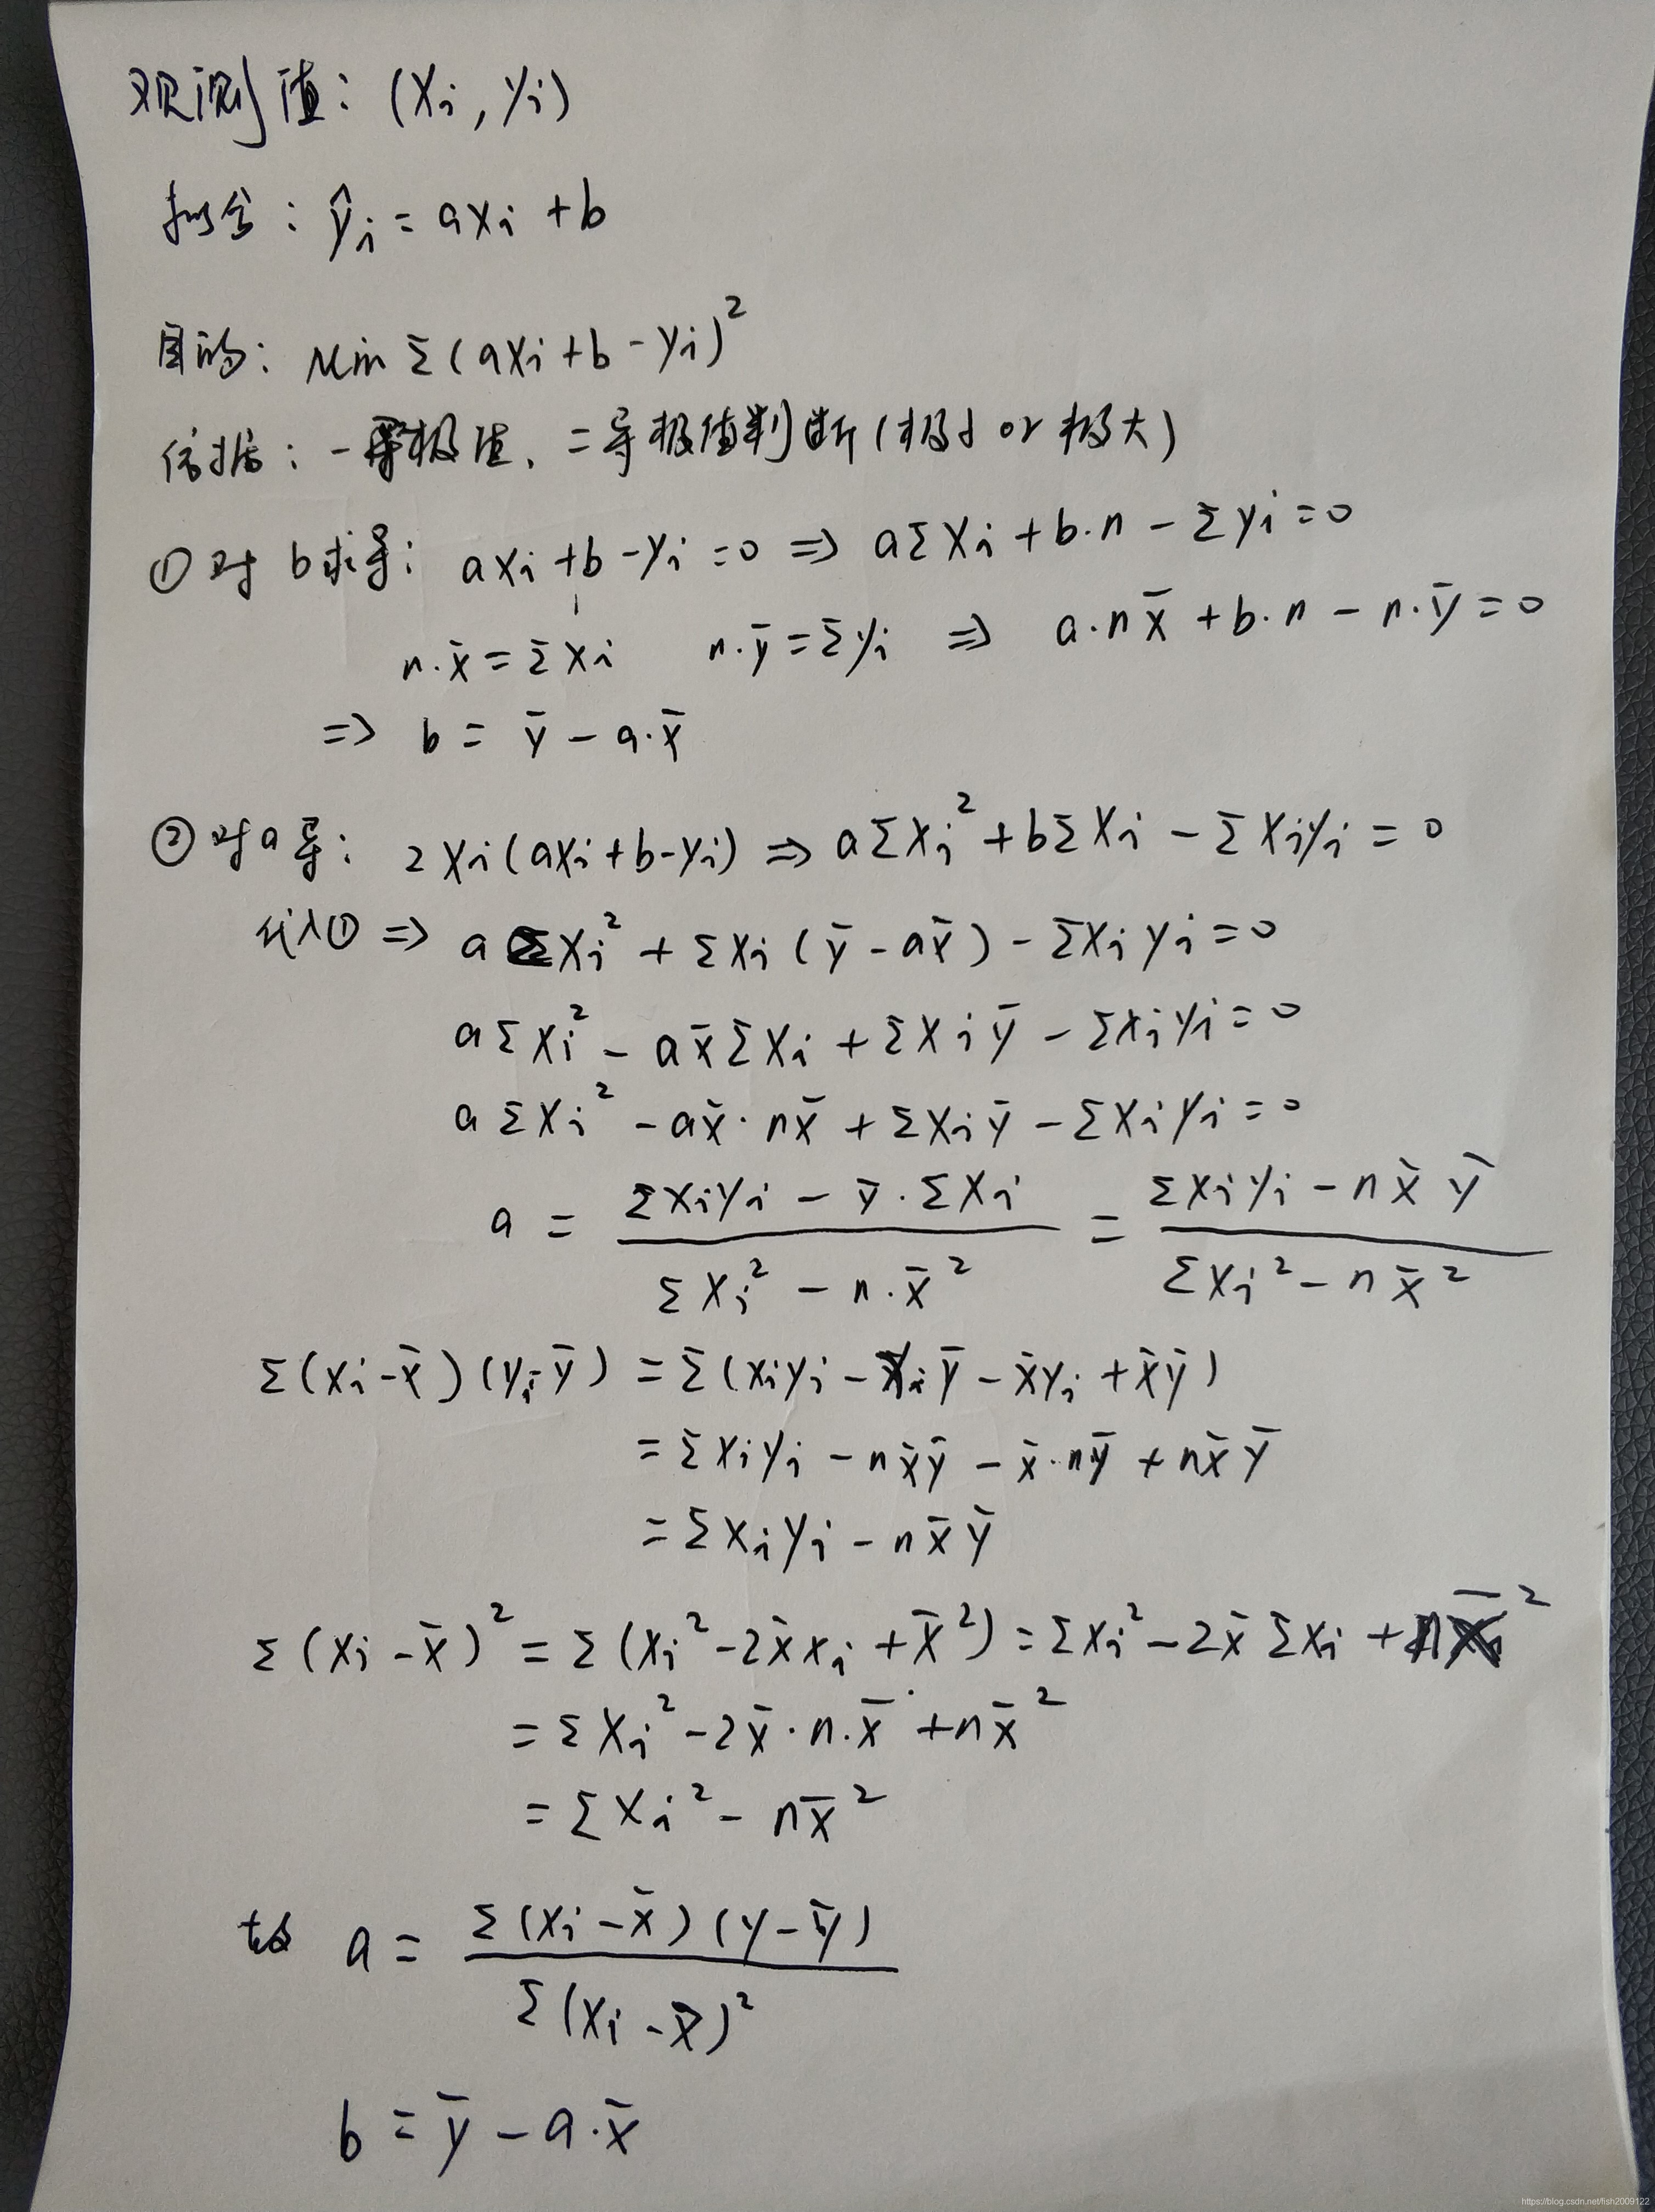 观测值: (xi, yi)
拟合: ŷi = axi + b
目的: Min Σ(axi + b - yi)²
依据: 一导极值、二导极值判断(极小 or 极大)
① 对 b求导: axi + b - yi = 0 => aΣxi + b·n - Σyi = 0
n·x̄ = Σxi n·ȳ = Σyi => a·nx̄ + b·n - n·ȳ = 0
=> b = ȳ - a·x̄
② 对a导: 2xi(axi + b - yi) => aΣxi² + bΣxi - Σxiyi = 0
代入① => aΣxi² + Σxi(ȳ - ax̄) - Σxiyi = 0
aΣxi² - ax̄Σxi + Σxiȳ - Σxiyi = 0
aΣxi² - ax̄·nx̄ + Σxiȳ - Σxiyi = 0
a = (Σxiyi - ȳ·Σxi) / (Σxi² - n·x̄²) = (Σxiyi - nx̄ȳ) / (Σxi² - nx̄²)
Σ(xi - x̄)(yi - ȳ) = Σ(xiyi - xiȳ - x̄yi + x̄ȳ)
= Σxiyi - nx̄ȳ - x̄·nȳ + nx̄ȳ
= Σxiyi - nx̄ȳ
Σ(xi - x̄)² = Σ(xi² - 2x̄xi + x̄²) = Σxi² - 2x̄Σxi + nx̄²
= Σxi² - 2x̄·n·x̄ + nx̄²
= Σxi² - nx̄²
故 a = Σ(xi - x̄)(y - ȳ) / Σ(xi - x̄)²
b = ȳ - a·x̄
https://blog.csdn.net/fish2009122